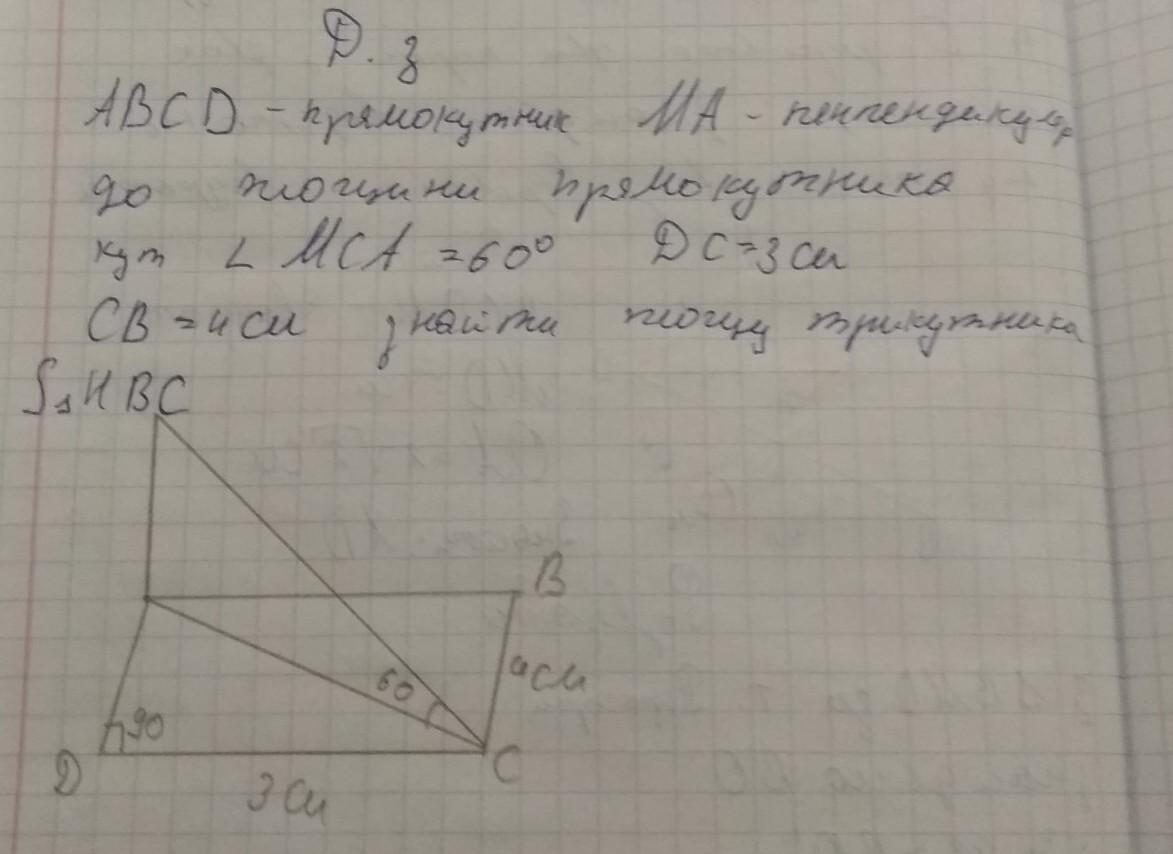 Д. з
ABCD - прямокутник MA - перпендикуляр
до площини прямокутника
кут ∠ MCA = 60° DC = 3 см
CB = 4 см знайти площу трикутника
S△MBC
B
60
4 см
90
D
C
3 см